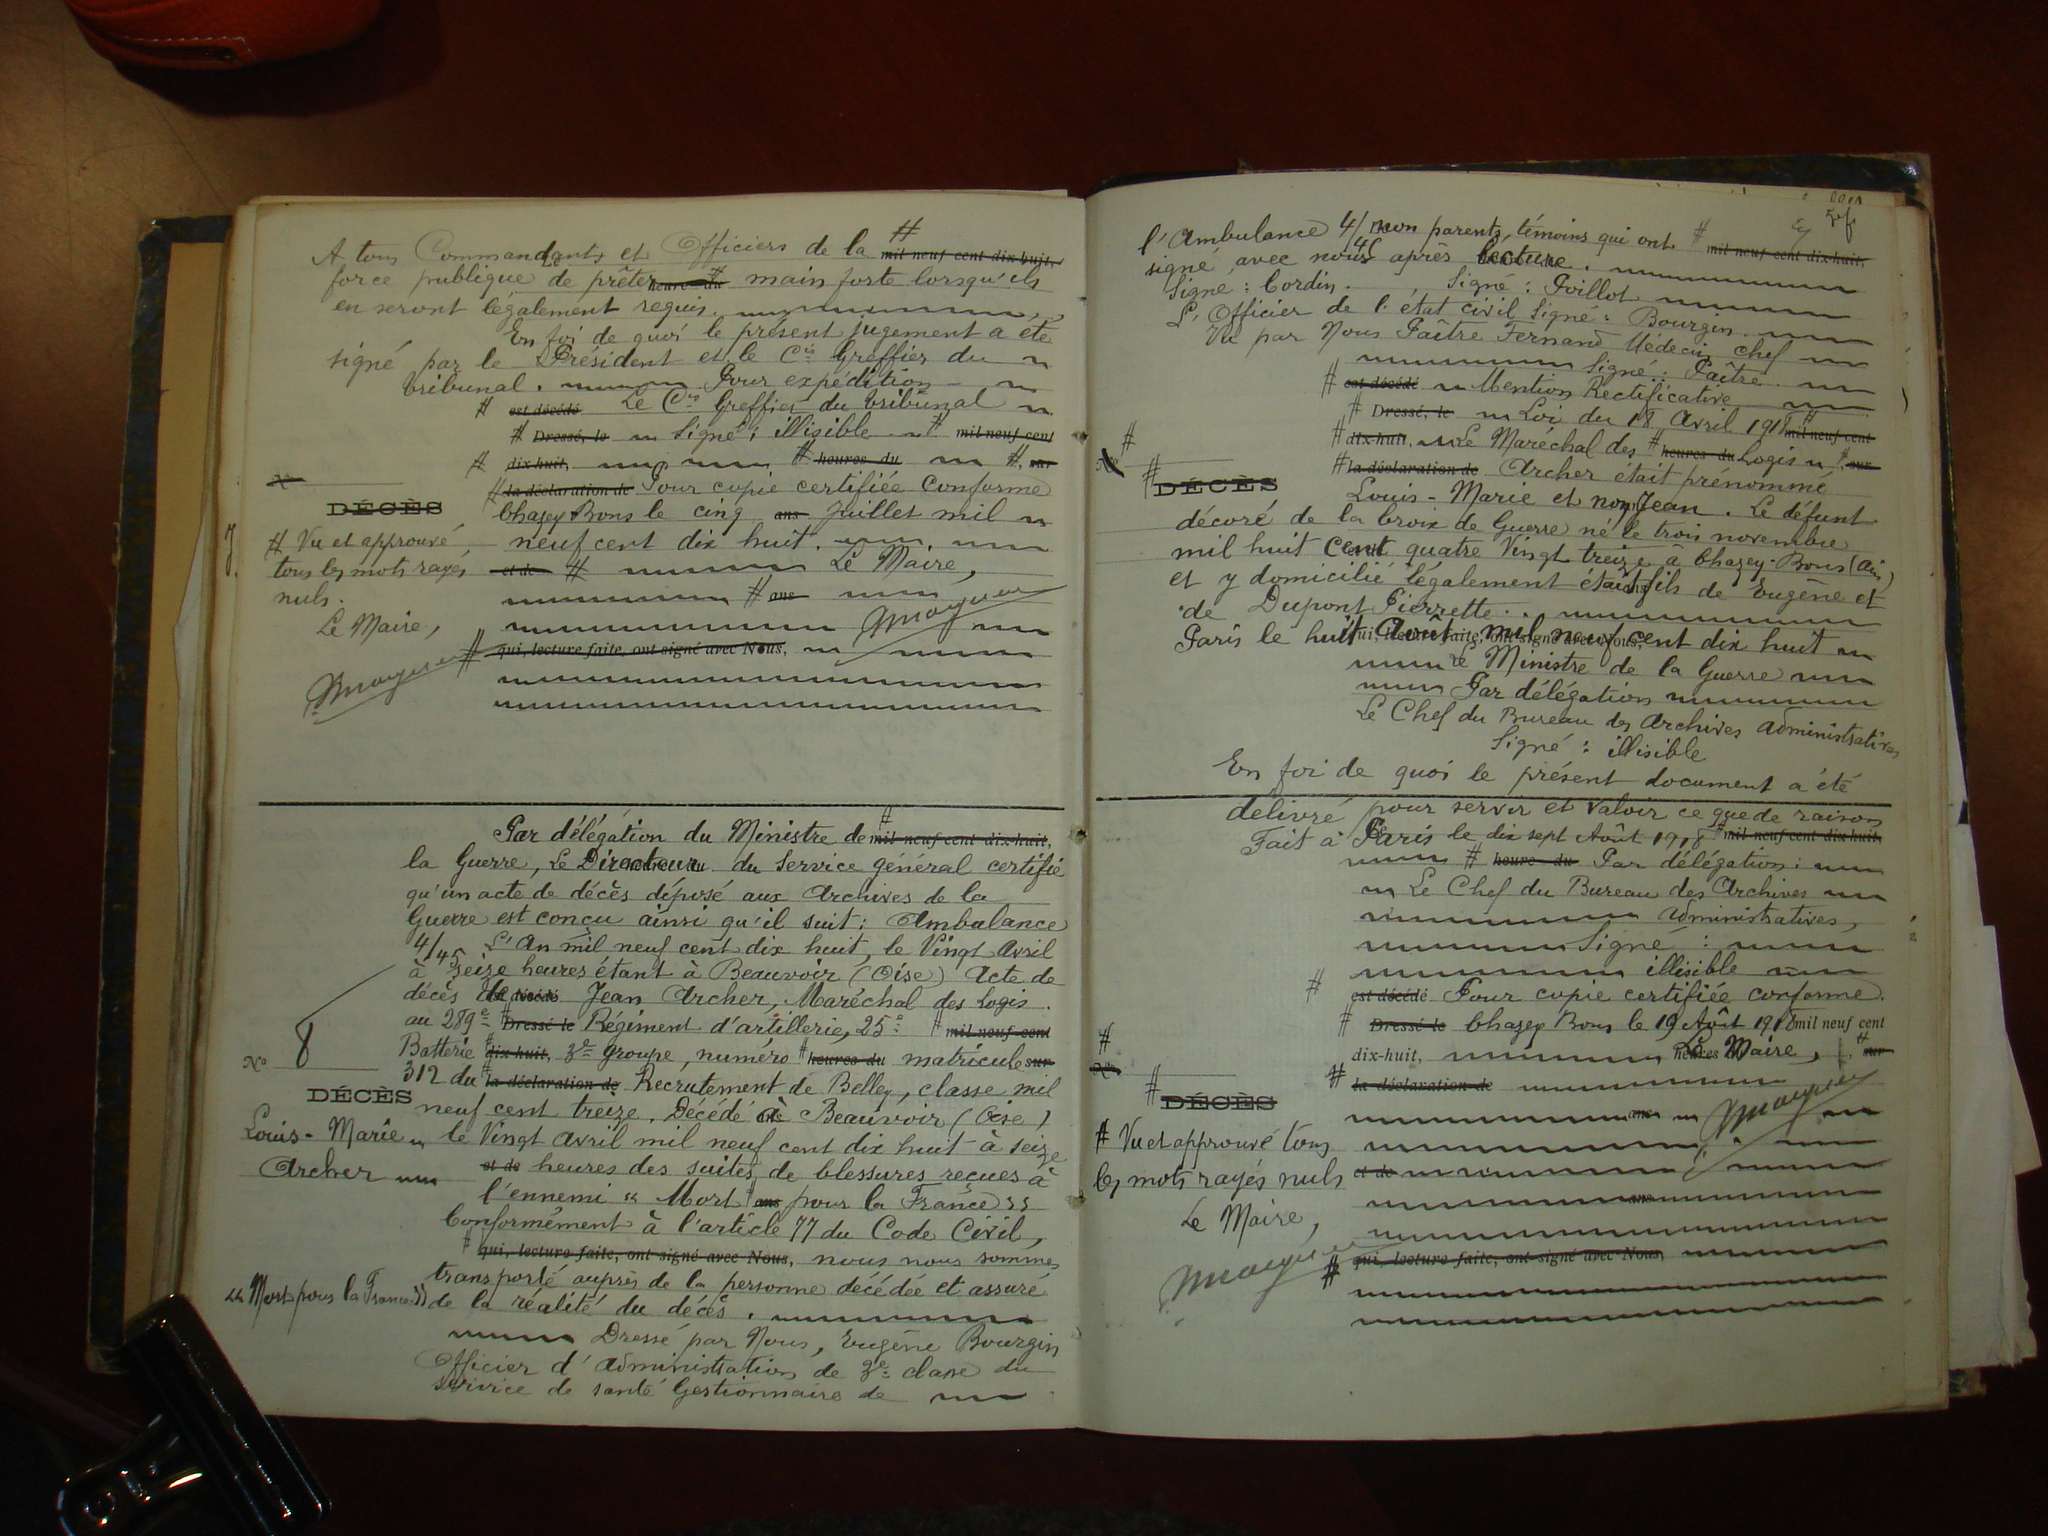 A tous Commandants et Officiers de la # mil neuf cent dix-huit,
force publique de prêter heure du # main forte lorsqu'ils
en seront légalement requis.
En foi de quoi le présent jugement a été
signé par le Président et le Cis Greffier du
tribunal. Pour expédition
# est décédé Le Cis Greffier du tribunal
# Dressé, le Signé : illisible # mil neuf cent
# dix-huit, # heures du #, sur
# la déclaration de Pour copie certifiée conforme
Chazey Bons le cinq ans Juillet mil
neuf cent dix huit.
et de # Le Maire,
# ans
# qui, lecture faite, ont signé avec Nous,
No
DÉCÈS
# Vu et approuvé
tous les mots rayés
nuls.
Le Maire,
Par délégation du Ministre de # mil neuf cent dix-huit,
la Guerre, Le Directeur du Service général certifie
qu'un acte de décès déposé aux Archives de la
Guerre est conçu ainsi qu'il suit : Ambulance
4/45 L'An mil neuf cent dix huit, le Vingt Avril
à seize heures étant à Beauvoir (Oise) Acte de
décès de Jean Archer, Maréchal des Logis
au 289e # Dressé le Régiment d'artillerie, 25e # mil neuf cent
Batterie # dix-huit, 3e groupe, numéro # heures du matricule sur
312 du # la déclaration de Recrutement de Belley, classe mil
neuf cent treize. Décédé à Beauvoir (Oise)
le Vingt Avril mil neuf cent dix huit à seize
et de heures des suites de blessures reçues à
l'ennemi "Mort # ans pour la France"
Conformément à l'article 77 du Code Civil,
# qui, lecture faite, ont signé avec Nous, nous nous sommes
transporté auprès de la personne décédée et assuré
de la réalité du décès.
Dressé par Nous, Eugène Bourgin
Officier d'administration de 3e classe du
service de santé Gestionnaire de
No 8
DÉCÈS
Louis-Marie
Archer
"Mort pour la France"
l'Ambulance 4/45 non parents, témoins qui ont # mil neuf cent dix-huit,
signé avec nous après lecture.
Signé : Cordin. Signé : Poillot
L'Officier de l'état civil Signé : Bourgin
Vu par Nous Paître Fernand Médecin chef
Signé : Paître
# est décédé Mention Rectificative
# Dressé, le Loi du 18 Avril 1918 # mil neuf cent
# dix-huit, Le Maréchal des # heures du Logis #, sur
# la déclaration de Archer était prénommé
Louis-Marie et non Jean. Le défunt
décoré de la Croix de Guerre né le trois novembre
mil huit cent quatre Vingt treize à Chazey-Bons (Ain)
et y domicilié légalement était fils de Eugène et
de Dupont Pierrette.
Paris le huit Août mil neuf cent dix huit
Le Ministre de la Guerre
Par délégation
Le Chef du Bureau des Archives Administratives
Signé : illisible
En foi de quoi le présent document a été
#
No
# DÉCÈS
délivré pour servir et valoir ce que de raison
Fait à Paris le dix sept Août 1918 # mil neuf cent dix-huit,
# heure du Par délégation :
Le Chef du Bureau des Archives
Administratives,
Signé :
illisible
# est décédé Pour copie certifiée conforme.
# Dressé le Chazey Bons le 19 Août 1918 mil neuf cent
dix-huit, heures Le Maire, # sur
# la déclaration de
ans
et de
ans
# qui, lecture faite, ont signé avec Nous,
#
No
# DÉCÈS
# Vu et approuvé tous
les mots rayés nuls
Le Maire,